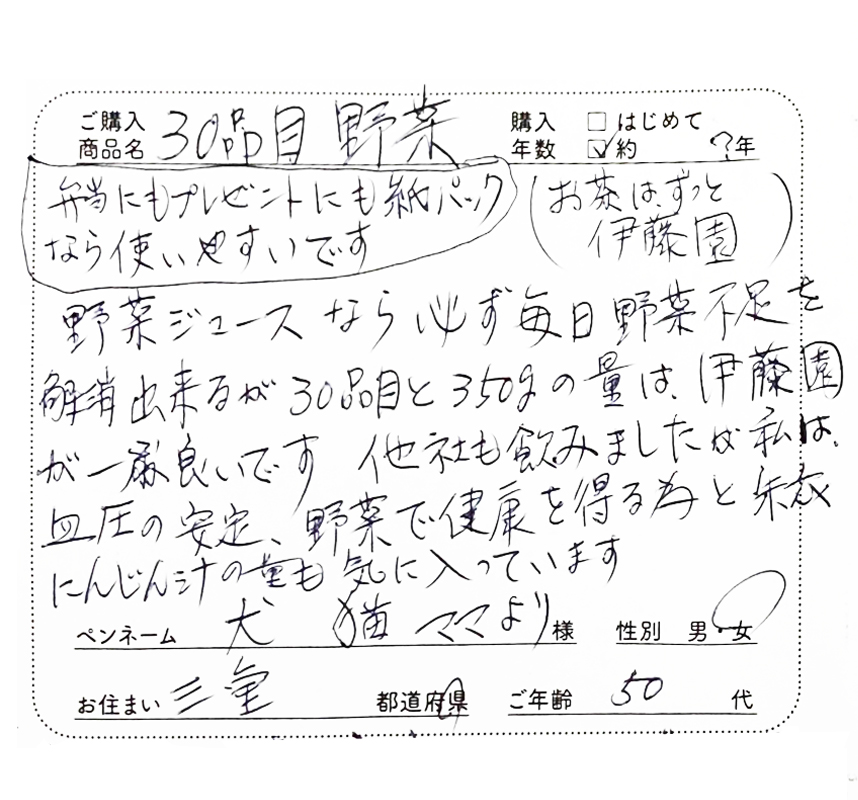 ご購入商品名 30品目 野菜
購入年数 □はじめて ☑約 ?年
弁当にもプレゼントにも紙パック
なら使いやすいです
(お茶は、ずっと
伊藤園)
野菜ジュースなら必ず毎日野菜不足を
解消出来るが30品目と350gの量は、伊藤園
が一番良いです 他社も飲みましたが私は、
血圧の安定、野菜で健康を得る為と
にんじん汁の量も気に入っています
ペンネーム 犬 猫 ママより様 性別 男・女
お住まい 三重 都道府県 ご年齢 50 代